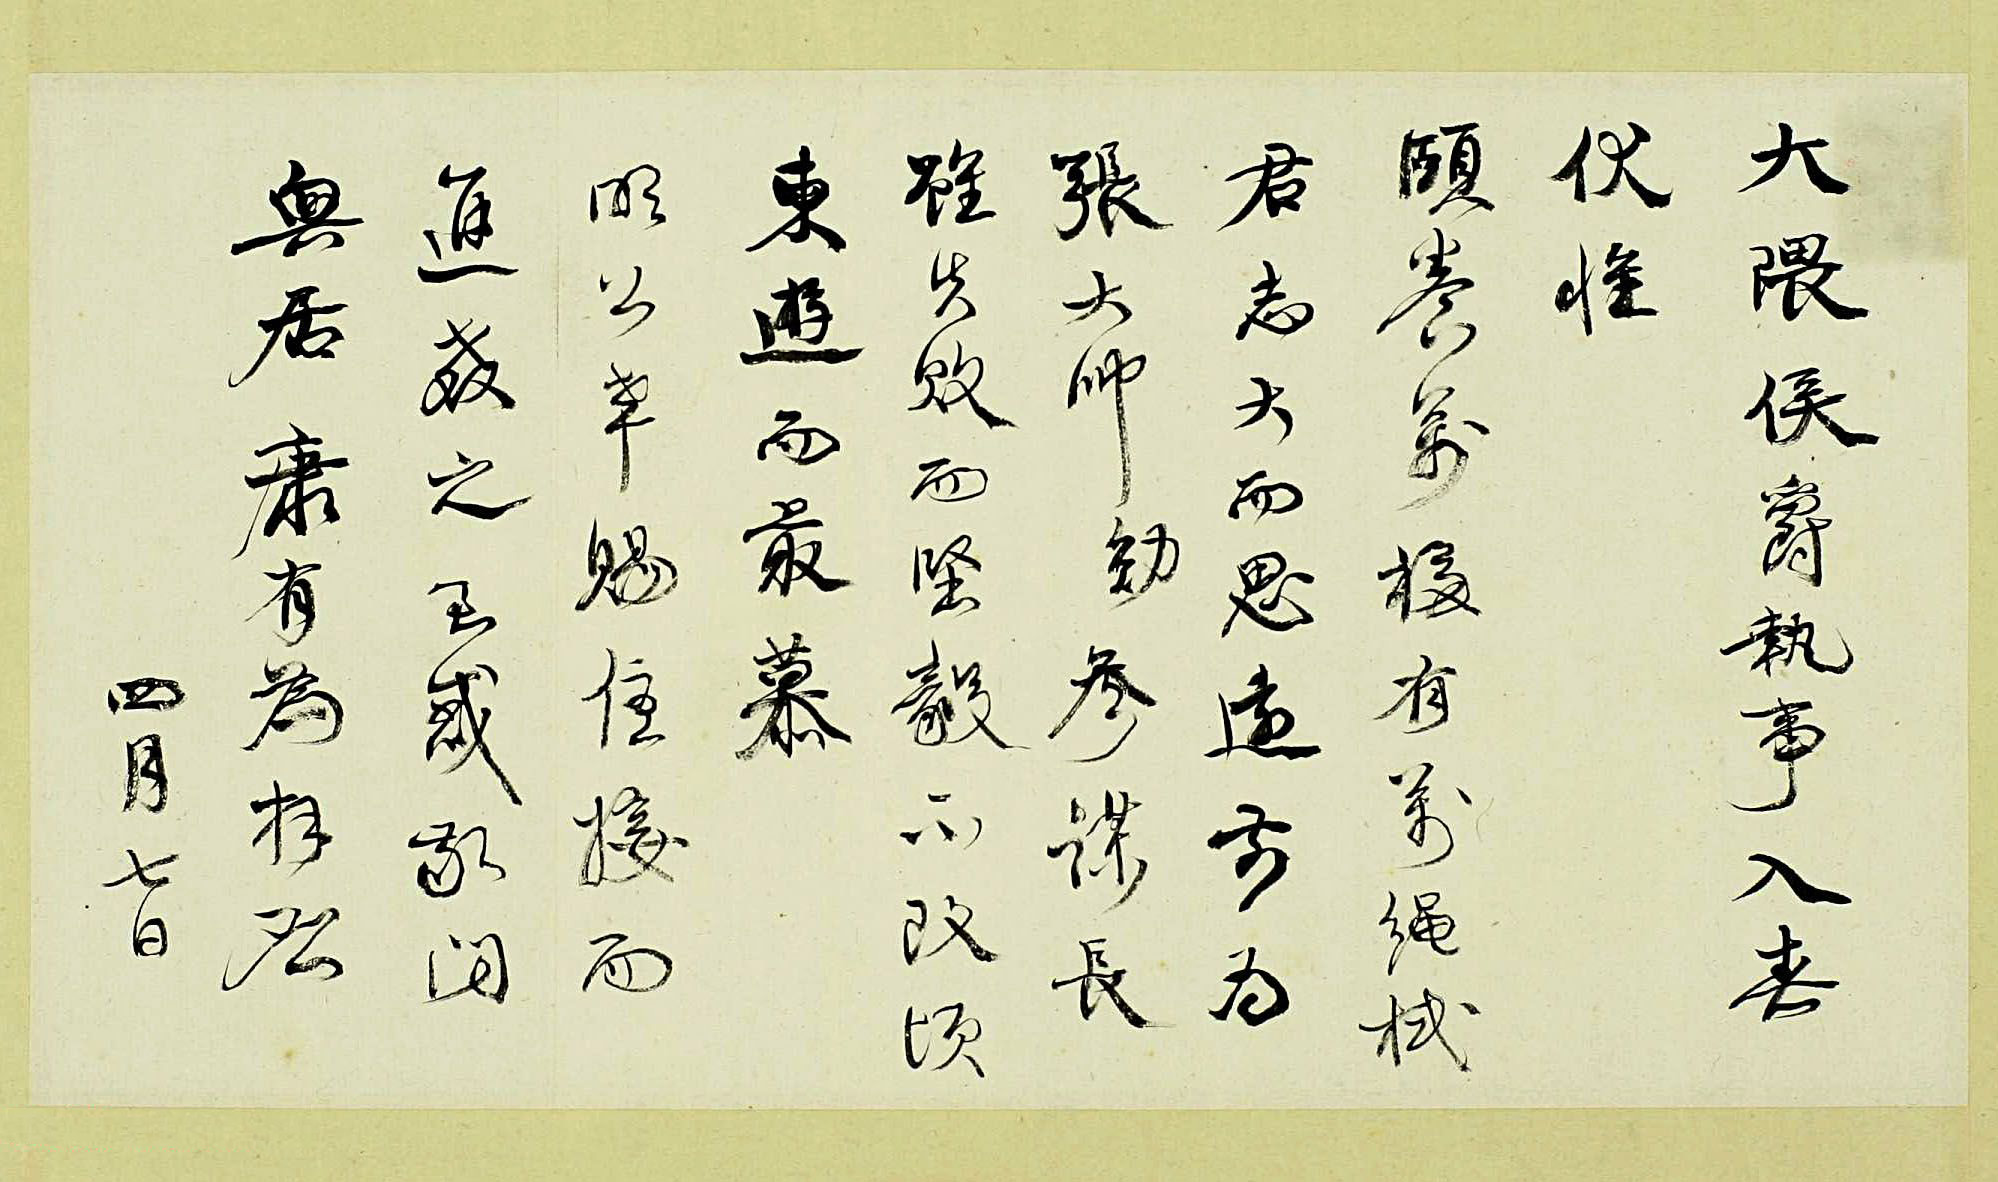 大隈侯爵執事入春
伏惟
頤養萬福有萬繩栻
君志大而思遠前為
張大帥勳參謀長
雖失敗而堅毅不改頃
東遊而最慕
明公幸賜佳接而
進教之至感敬問
興居 康有為拜啟
四月七日